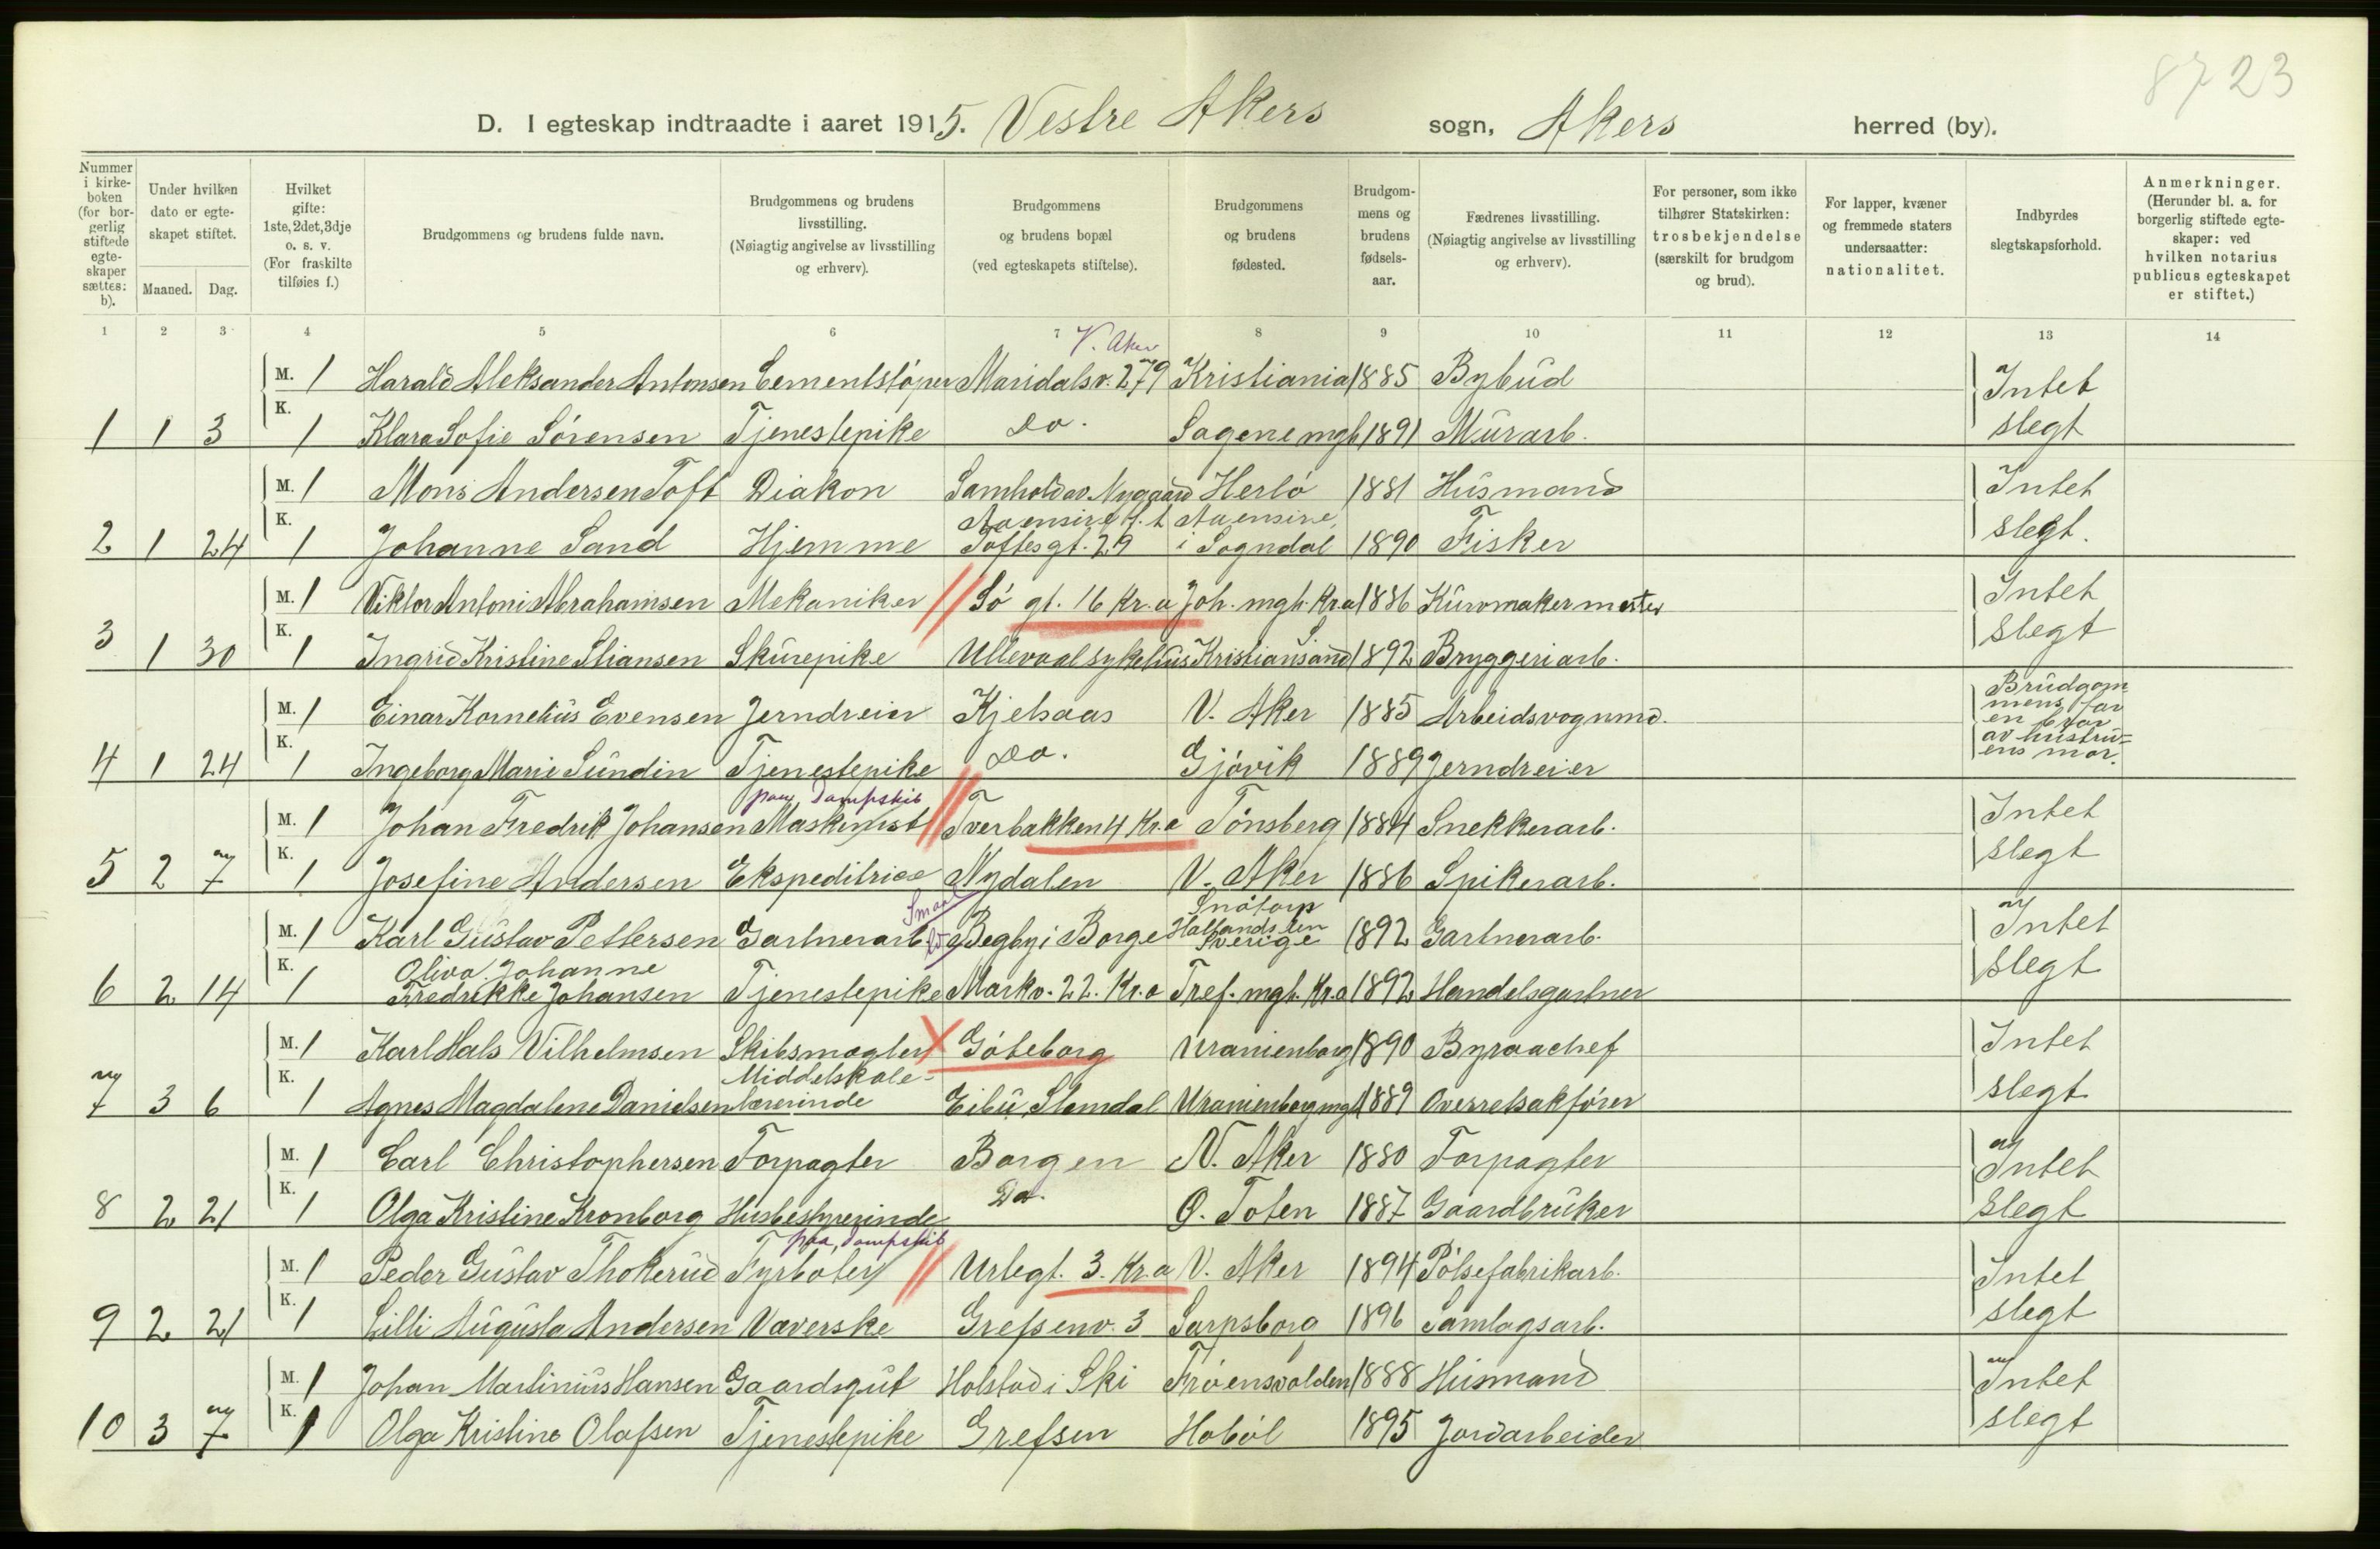 8723
D. I egteskap indtraadte i aaret 1915. Vestre Akers sogn, Akers herred (by).
Nummer i kirkeboken (for borgerlig stiftede egteskaper sættes: b).
Under hvilken dato er egteskapet stiftet.
Maaned. Dag.
Hvilket gifte: 1ste, 2det, 3dje o. s. v. (For fraskilte tilføies f.)
Brudgommens og brudens fulde navn.
Brudgommens og brudens livsstilling. (Nøiagtig angivelse av livsstilling og erhverv).
Brudgommens og brudens bopæl (ved egteskapets stiftelse).
Brudgommens og brudens fødested.
Brudgommens og brudens fødselsaar.
Fædrenes livsstilling. (Nøiagtig angivelse av livsstilling og erhverv).
For personer, som ikke tilhører Statskirken: trosbekjendelse (særskilt for brudgom og brud).
For lapper, kvæner og fremmede staters undersaatter: nationalitet.
Indbyrdes slegtskapsforhold.
Anmerkninger. (Herunder bl. a. for borgerlig stiftede egteskaper: ved hvilken notarius publicus egteskapet er stiftet.)
1 2 3 4 5 6 7 8 9 10 11 12 13 14
V. Aker
M. 1 Harald Aleksander Antonsen Cementstøper Maridalsv. 279 Kristiania 1885 Bybud Intet
1 1 3 K. 1 Klara Sofie Sørensen Tjenestepike do. Sagene mgh 1891 Murarb. slegt
M. 1 Mons Andersen Toft Diakon Samhold av. Nygaard Herlø 1881 Husmand Intet
Aaensire
2 1 24 K. 1 Johanne Sand Hjemme Toftesgt. 29 i Sogndal 1890 Fisker slegt.
M. 1 Viktor Antoni Abrahamsen Mekaniker Sø gt. 16 Kr.a Joh. mgh. Kr.a 1886 Kurvmakermester Intet
3 1 30 K. 1 Ingrid Kristine Stiansen Skurepike Ullevaal sykehus Kristiansand S. 1892 Bryggeriarb. slegt
M. 1 Einar Kornelius Evensen Jerndreier Kjelsaas V. Aker 1885 Arbeidsvognmd. Brudgommens far en bror
4 1 24 K. 1 Ingeborg Marie Sundin Tjenestepike do. Gjøvik 1889 Jerndreier av hustruens mor.
paa Dampskib
M. 1 Johan Fredrik Johansen Maskinist Tverbakken 4 Kr.a Tønsberg 1884 Snekkerarb. Intet
5 2 7 K. 1 Josefine Andersen Ekspeditrice Nydalen V. Aker 1886 Spikerarb. slegt
Snøtorp
M. 1 Karl Gustav Pettersen Gartnerarb. Begby i Borge Hallands len Sverige 1892 Gartnerarb. Intet
Oliva Johanne
6 2 14 K. 1 Fredrikke Johansen Tjenestepike Markv. 22. Kr.a Tref. mgh. Kr.a 1892 Handelsgartner slegt
M. 1 Karl Hals Vilhelmsen Skibsmægler Göteborg Uranienborg 1890 Byraachef Intet
Middelskole-
7 3 6 K. 1 Agnes Magdalene Danielsen lærerinde Eibu, Slemdal Uranienborg mgh 1889 Overretsakfører slegt
M. 1 Carl Christophersen Forpagter Borgen N. Aker 1880 Forpagter Intet
8 2 21 K. 1 Olga Kristine Kronborg Husbestyrerinde Do. Ø. Toten 1887 Gaardbruker slegt
paa Dampskib
M. 1 Peder Gustav Thokerud Fyrbøter Urtegt. 3. Kr.a V. Aker 1894 Pølsefabrikarb. Intet
9 2 21 K. 1 Lilli Augusta Andersen Væverske Grefsenv. 3 Sarpsborg 1896 Samlagsarb. slegt
M. 1 Johan Martinius Hansen Gaardsgut Holstad i Ski Frøensvolden 1888 Husmand Intet
10 3 7 K. 1 Olga Kristine Olafsen Tjenestepike Grefsen Hobøl 1895 Jordarbeider slegt